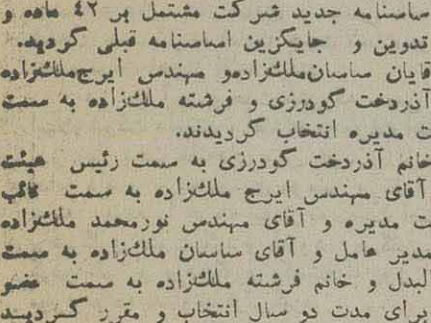 ساسنامه جدید شرکت مشتمل بر ۴۲ ماده و
تدوین و جایگزین اساسنامه قبلی گردید.
قایان ساسان ملک‌زاده و مهندس ایرج ملک‌زاده
آذردخت گودرزی و فرشته ملک‌زاده به سمت
ت مدیره انتخاب گردیدند.
خانم آذردخت گودرزی به سمت رئیس هیئت
آقای مهندس ایرج ملک‌زاده به سمت نائب
ت مدیره و آقای مهندس نورمحمد ملک‌زاده
مدیر عامل و آقای ساسان ملک‌زاده به سمت
لبدل و خانم فرشته ملک‌زاده به سمت عضو
برای مدت دو سال انتخاب و مقرر گردید